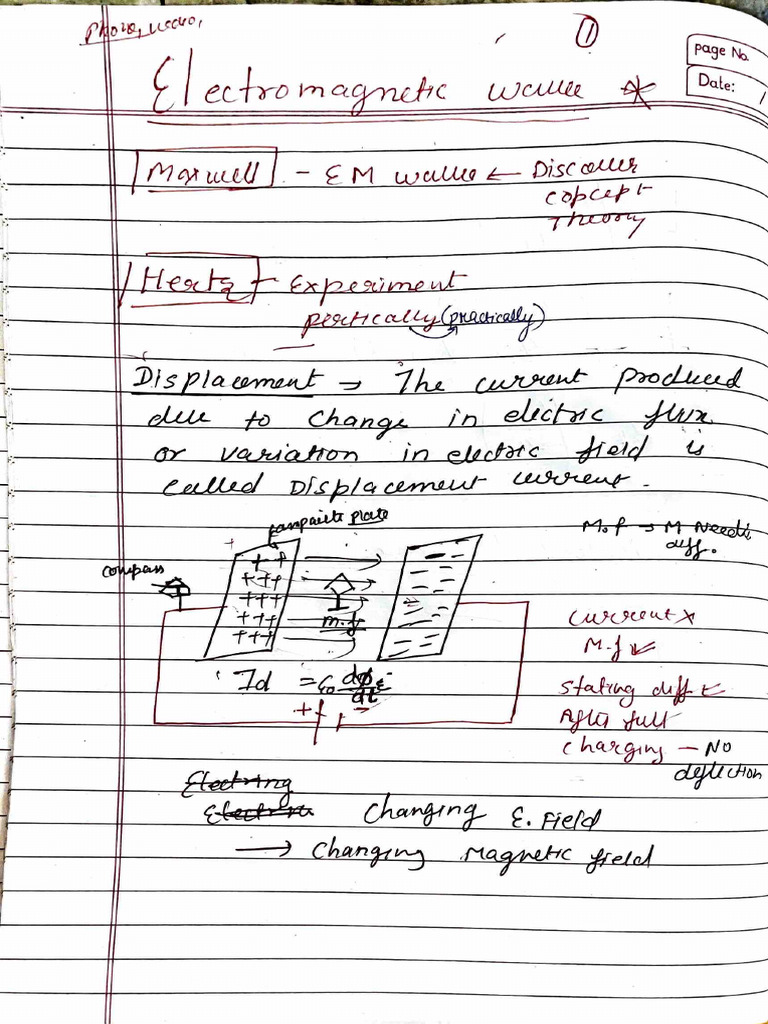 Phone,
①
page No.
Date: /
Electromagnetic wave *
Maxwell - EM wave ← Discover
concept
Theory
Hertz - Experiment
pertically (practically)
Displacement → The current produced
due to change in electric flux
or variation in electric field is
called Displacement current.
plate
M.f → M Needi
diff.
compass
+
++
+++
+++
+++
+++
m.f
current x
M.f ✓
Id = ε0 dφE/dt
+ -
stating diff ✓
After full
charging - No
deflection
Electring
Electri
Changing E. Field
→ Changing Magnetic field